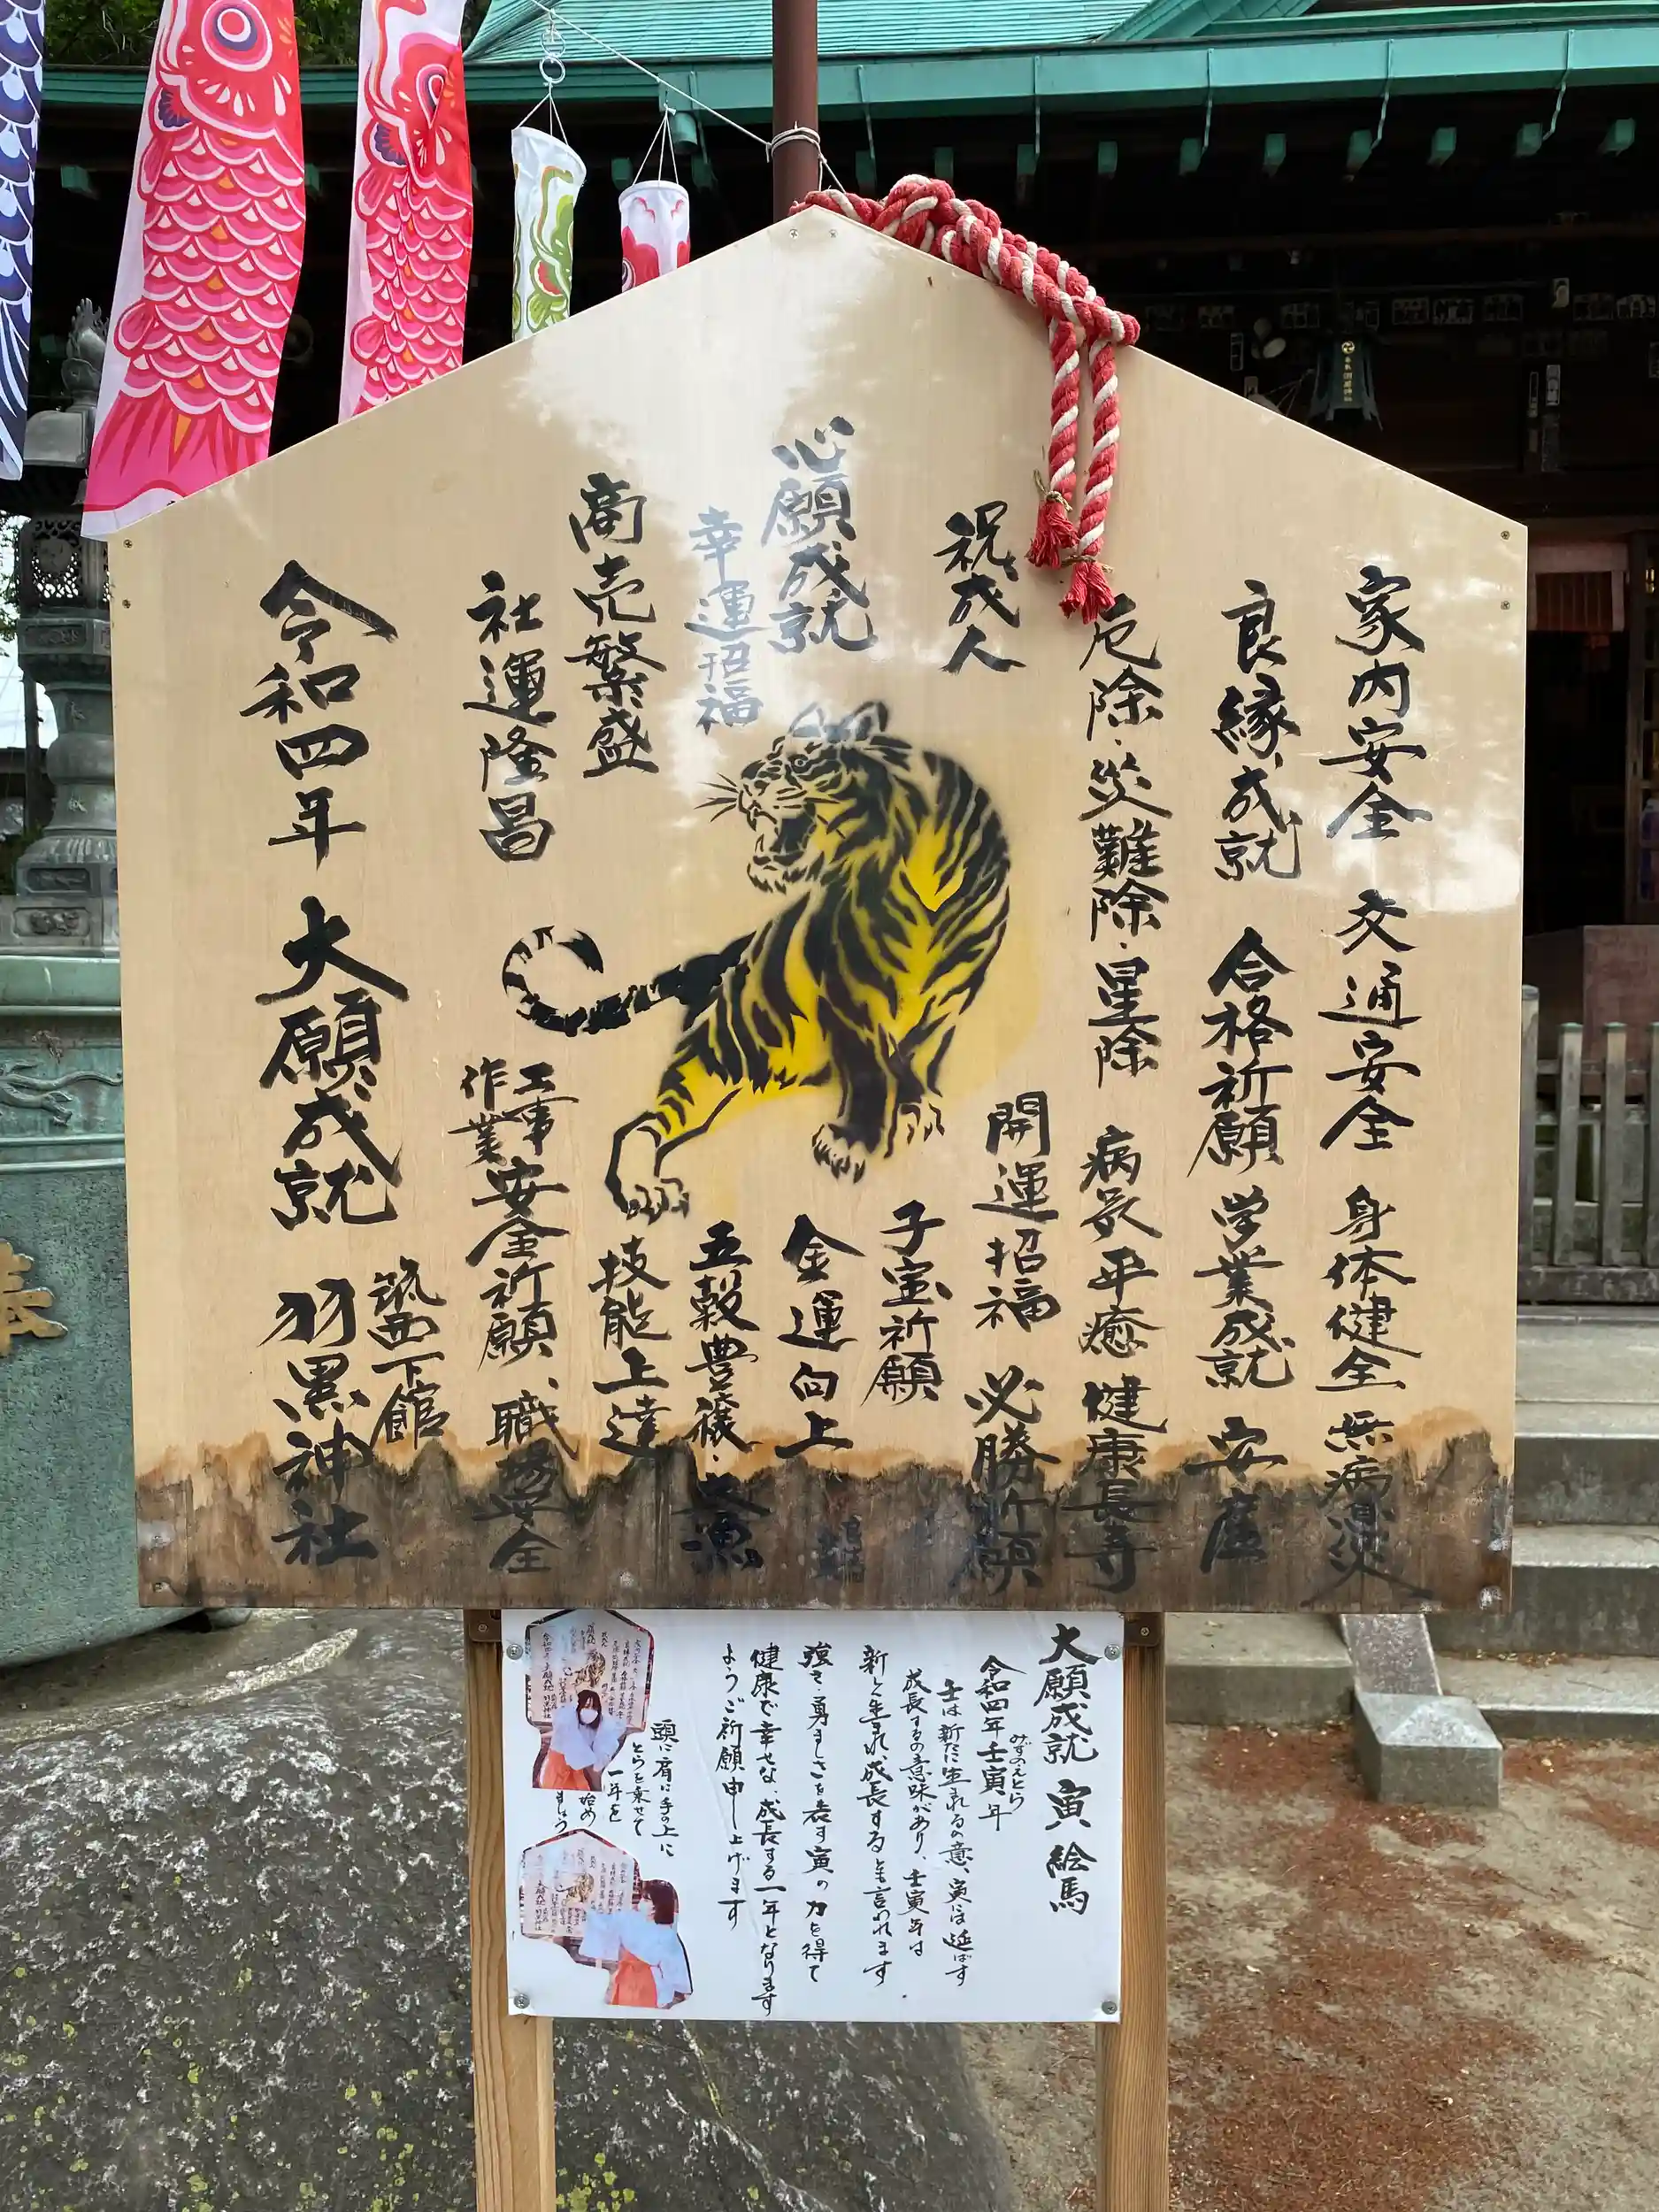 家内安全 交通安全 身体健全 無病息災
良縁成就 合格祈願 学業成就 安産
厄除・災難除・星除 病気平癒 健康長寿
祝成人
開運招福 必勝祈願
子宝祈願
心願成就
金運向上
幸運招福
五穀豊穣・大漁
商売繁盛
技能上達
社運隆昌
工事
作業
安全祈願、職場安全
令和四年 大願成就
筑西下館
羽黒神社
大願成就 寅 絵馬
みずのえとら
令和四年壬寅年
壬は新たに生まれるの意、寅は延ばす
成長するの意味があり、壬寅年は
新しく生まれ、成長すると言われます
強さ・勇ましさを表す寅の力を得て
健康で幸せな、成長する一年となります
ようご祈願申し上げます
頭に肩に手の上に
とらを乗せて
一年を
始め
ましょう